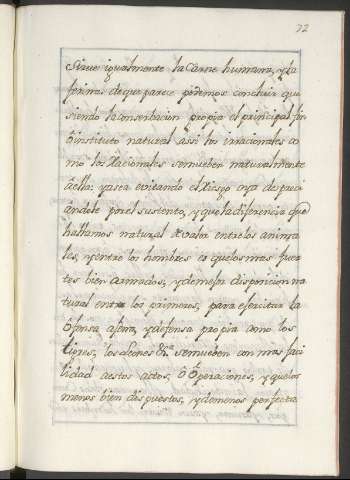 72
Suave igualmente la Carne humana, y la
ferina: de que parece podemos concluir que
siendo la conserbacion propia el principal fin
ó instituto natural assi los irracionales co
mo los Racionales semueben naturalmente
á ella: ya sea evitando el Riesgo oya despre
ciandole por el susiento, y que la diferencia que
hallamos natural de valor entre los anima
les, y entre los hombres es que los mas fuer
tes bien armados, y de mejor disposicion na
tural entre los primeros, para exercitar la
ofensa ajena, y defensa propia como los
tigres, los Leones &a. semueben con mas faci
lidad a estos actos, ó Operaciones, y que los
menos bien dispuestos, y de menos perfecta